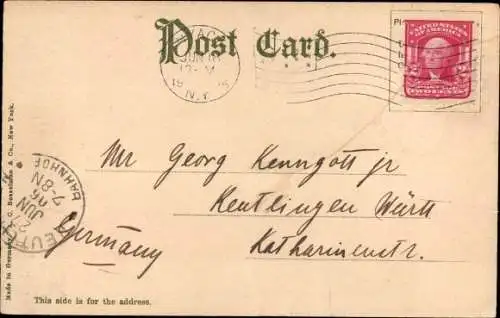 Post Card.
JUN
N.Y.
UNITED STATES
OF AMERICA
2 2
TWO CENTS
Mr Georg Kenngott jr
Reutlingen Württ
Katharinenstr.
Germany
BAHNHOF
7-8N
06
JUN
Made in Germany
& Co., New York.
This side is for the address.